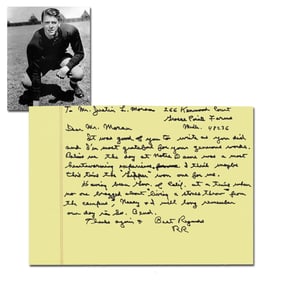 To Mr. Justin L. Moran 266 Kenwood Court
Grosse Pointe Farms
Mich. 48236
Dear Mr. Moran
It was good of you to write as you did
and I'm most grateful for your generous words.
Believe me the day at Notre Dame was a most
heartwarming experience. I think maybe
this time the "Gipper" won one for us.
Having been Gov. of Calif. at a time when
no one bragged about living a stones throw from
the campus, Nancy & I will long remember
our day in So. Bend.
Thanks again & Best Regards
RR